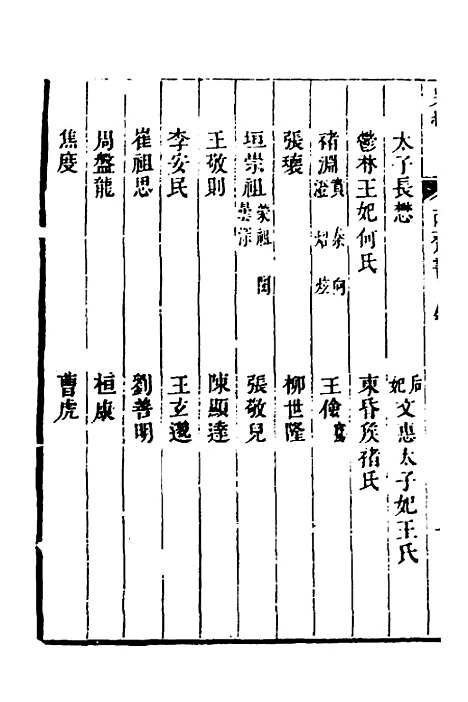 太子長懋 后妃文惠太子妃王氏
鬱林王妃何氏 東昏矦褚氏
褚淵 賁 蓁 向 澄 炤 炫 王儉
張瓌 柳世隆
垣崇祖 榮祖 閎 曇深 張敬兒
王敬則 陳顯達
李安民 王玄邈
崔祖思 劉善明
周盤龍 桓康
焦度 曹虎